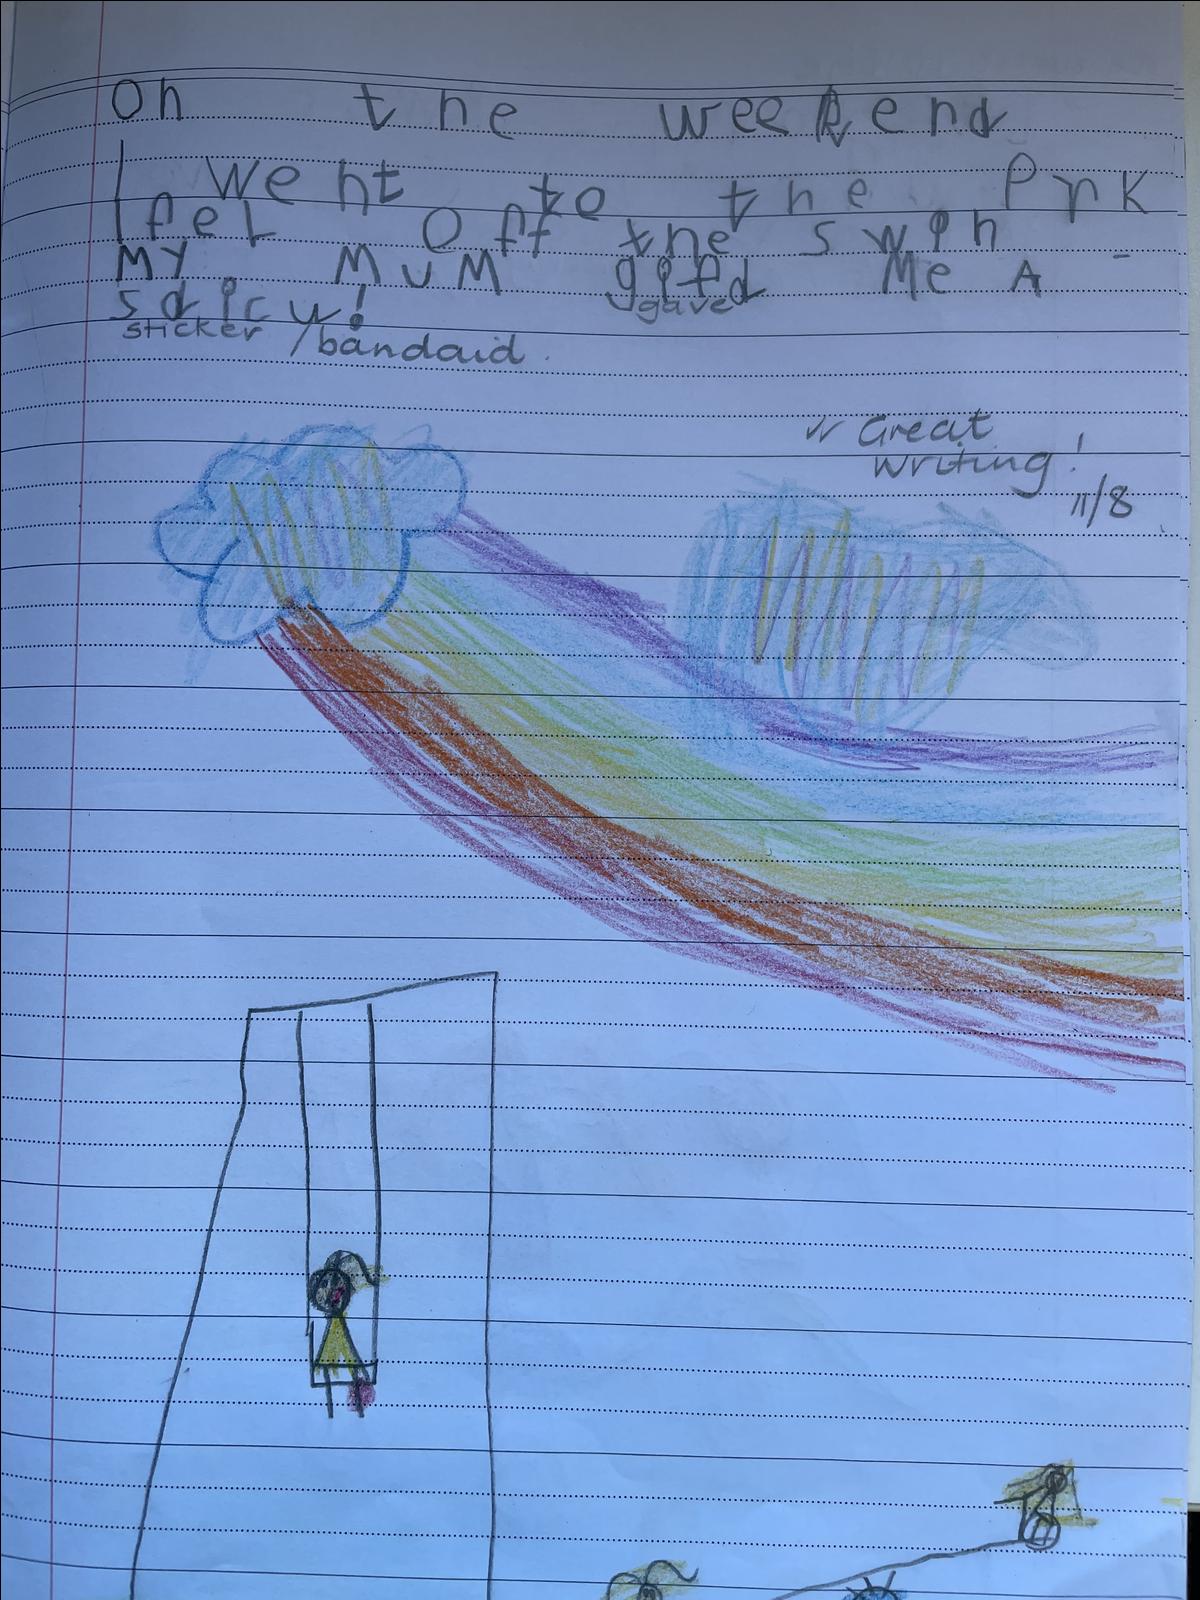 On the weekend
I went to the Prk
I feL off the swin
My MuM gifd Me A
gave
sdicu!
sticker /bandaid.
Great
writing!
11/8